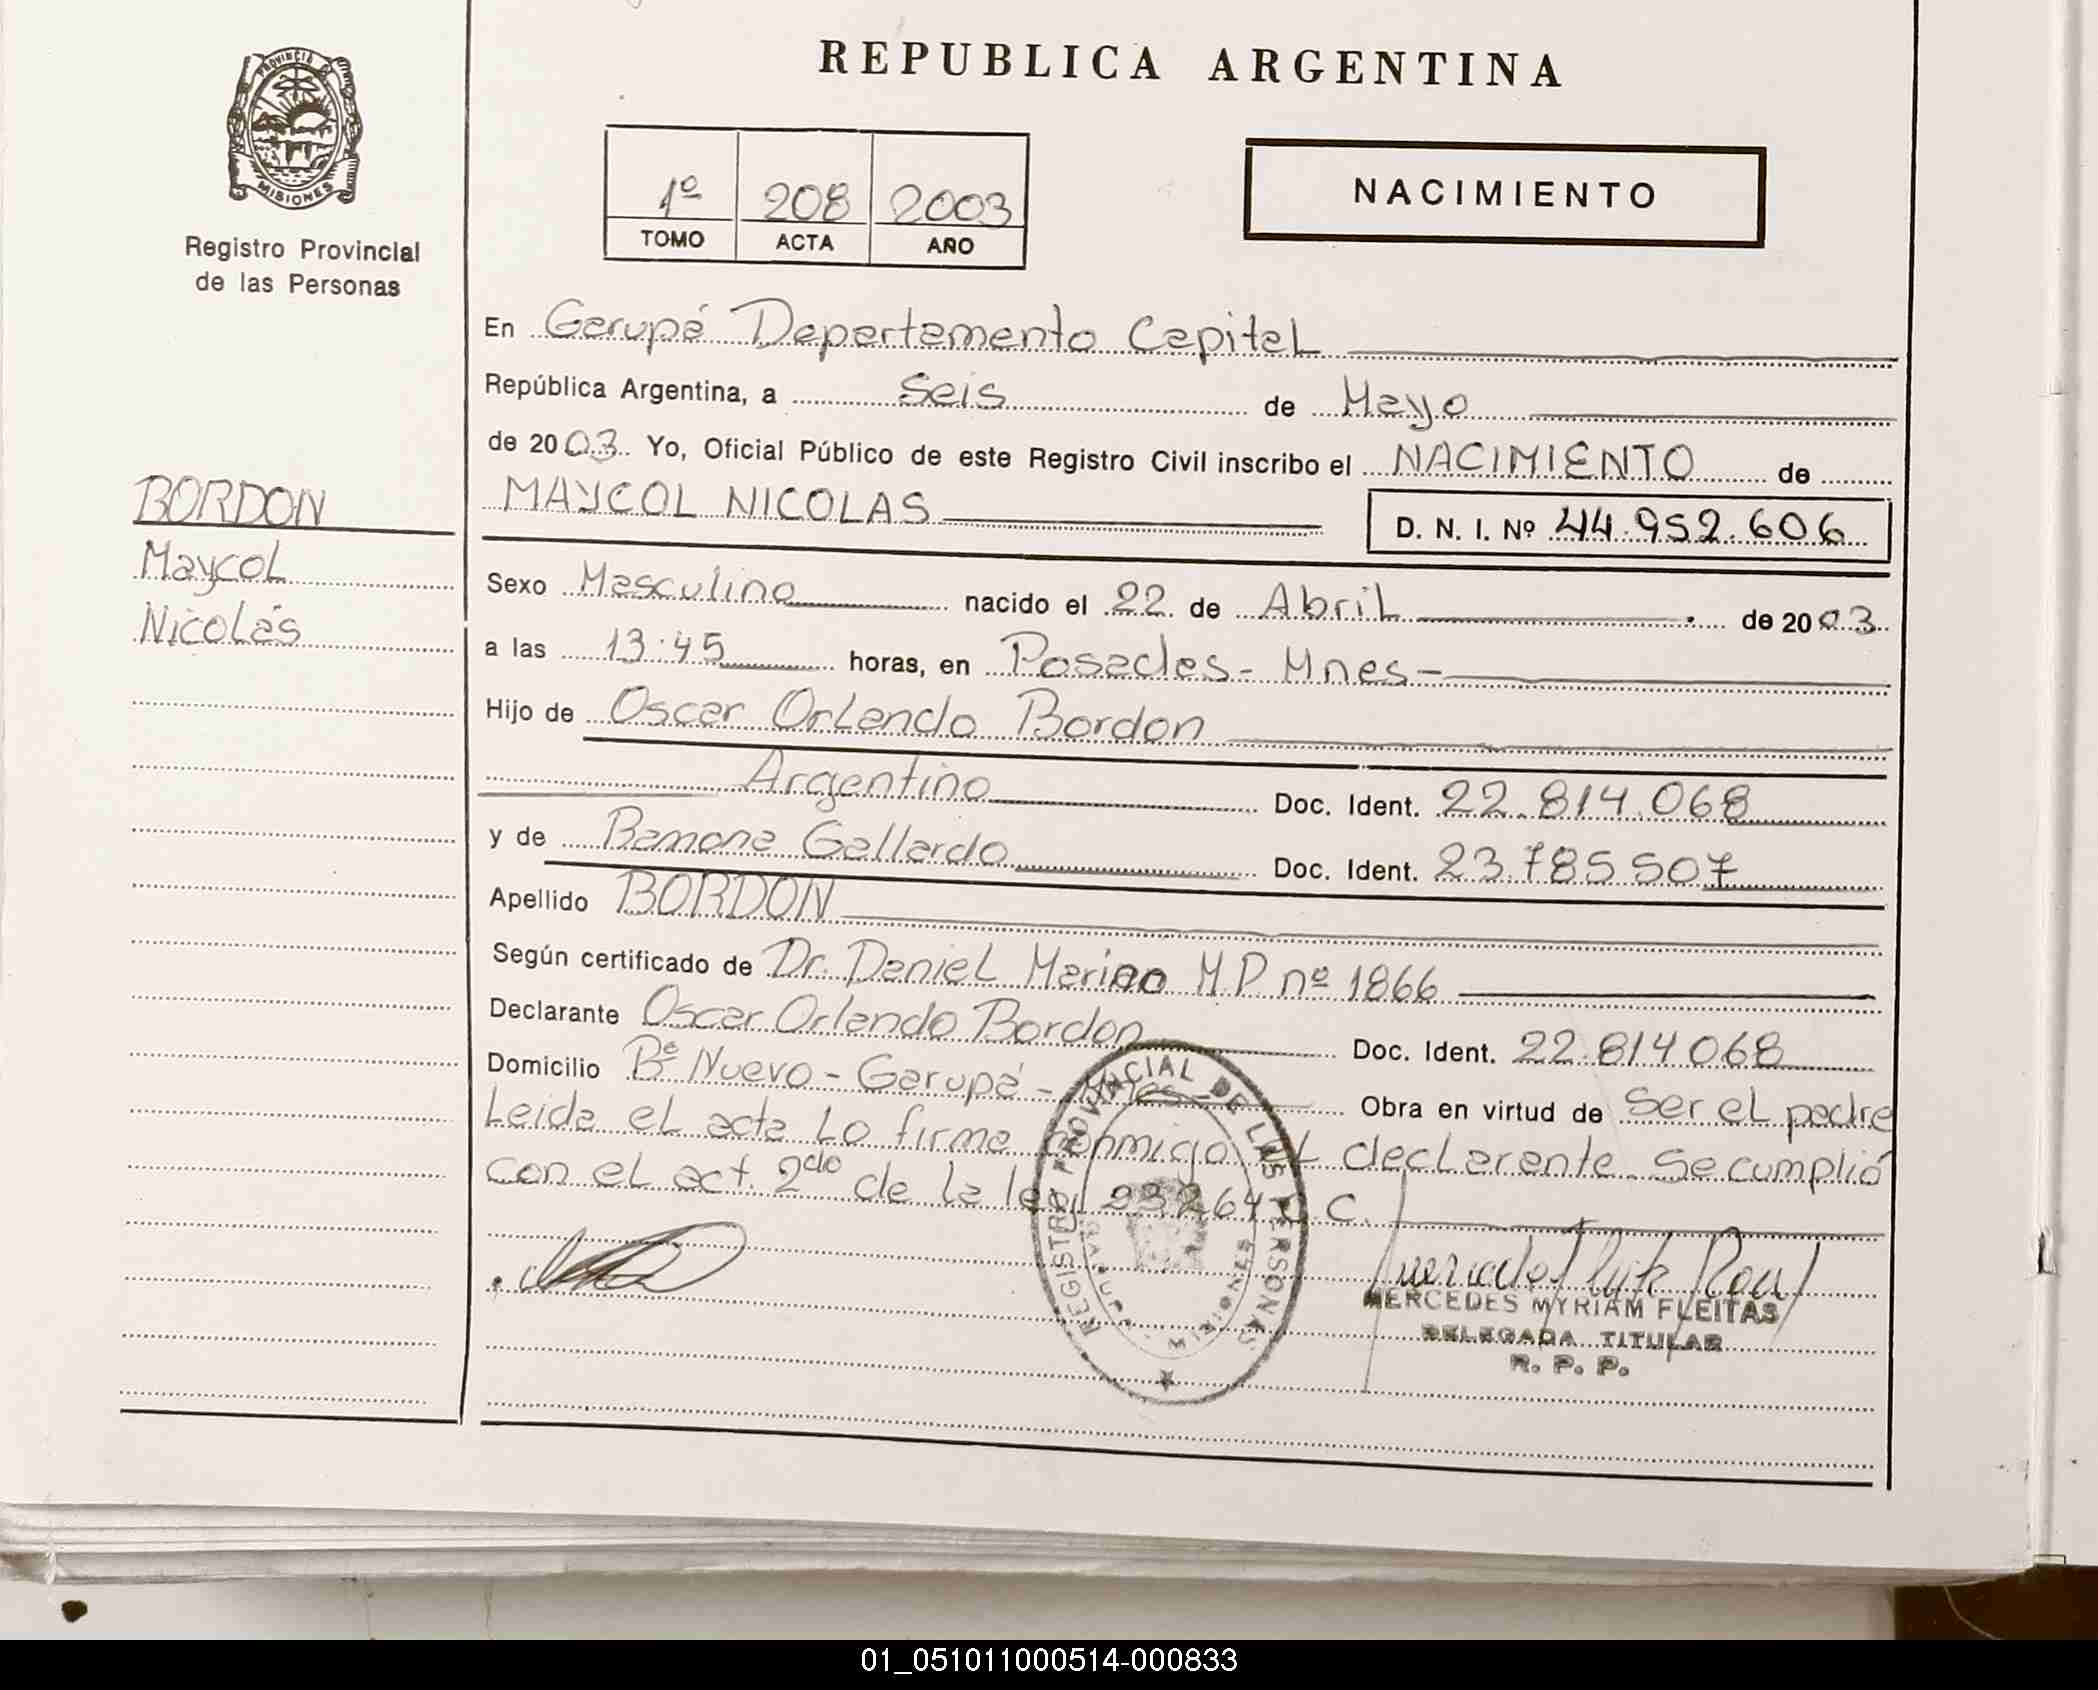 REPUBLICA ARGENTINA
PROVINCIA DE
MISIONES
Registro Provincial
de las Personas
1º 208 2003
TOMO ACTA AÑO
NACIMIENTO
BORDON
Maycol
Nicolás
En Garupá Departamento Capital
República Argentina, a Seis de Mayo
de 2003 Yo, Oficial Público de este Registro Civil inscribo el NACIMIENTO de
MAYCOL NICOLAS D. N. I. Nº 44.952.606
Sexo Masculino nacido el 22 de Abril de 2003
a las 13:45 horas, en Posadas - Mnes -
Hijo de Oscar Orlando Bordon
Argentino Doc. Ident. 22.814.068
y de Ramona Gallardo Doc. Ident. 23.785507
Apellido BORDON
Según certificado de Dr. Daniel Merino M.P. nº 1866
Declarante Oscar Orlando Bordon Doc. Ident. 22.814068
Domicilio Bº Nuevo - Garupá - Mnes Obra en virtud de ser el padre
Leida el acta Lo firma conmigo el declarante. Se cumplió
con el act. 2do de la ley 23264 C.C.
REGISTRO PROVINCIAL DE LAS PERSONAS
MISIONES
MERCEDES MYRIAM FLEITAS
DELEGADA TITULAR
R. P. P.
01_051011000514-000833